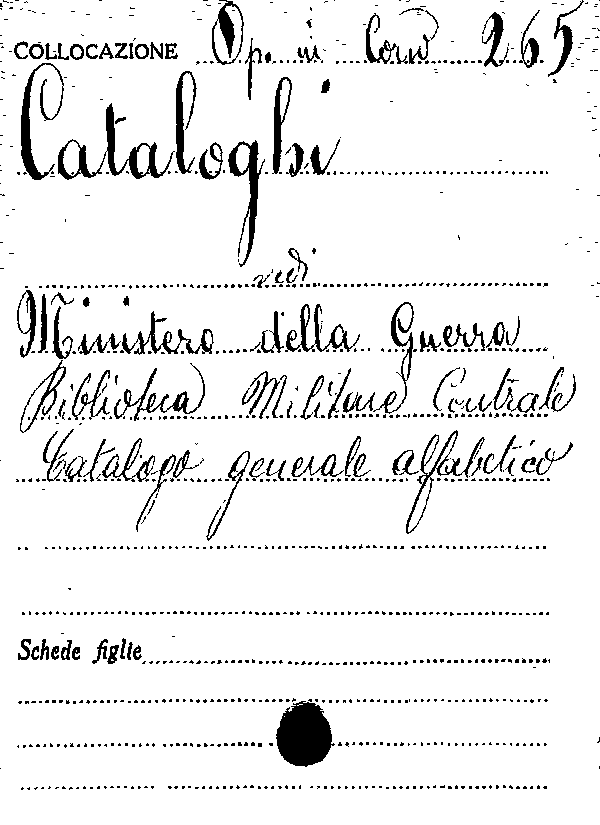 COLLOCAZIONE Op. in Corso 265
Cataloghi
vedi
Ministero della Guerra
Biblioteca Militare Centrale
Catalogo generale alfabetico
Schede figlie